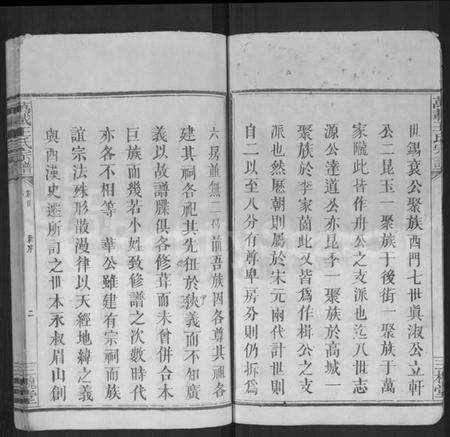 世錫袞公聚族西門七世眞淑公立軒
公二昆玉一聚族于後街一聚族于萬
家隴此皆作舟公之支派也迄八世志
源公達道公亦昆季一聚族於高城一
聚族於李家菌此又皆爲作楫公之支
派也然厯朝則屬於宋元兩代計世則
自二以至八分有尊卑房分則仍拆爲
萬載王氏宗譜
三槐堂
六房並無二
吾族因各尊其祠各
建其祠各祀其先狃於狹義而不知廣
義以故譜牒俱各修葺而未曾併合本
巨族而幾若小姓致修譜之次數時代
亦各不相等 華公雖建有宗祠而族
誼宗法殊形散漫律以天經地緯之義
與西漢史遷所訂之世本永叔眉山創
萬載王氏宗譜
二
三槐堂